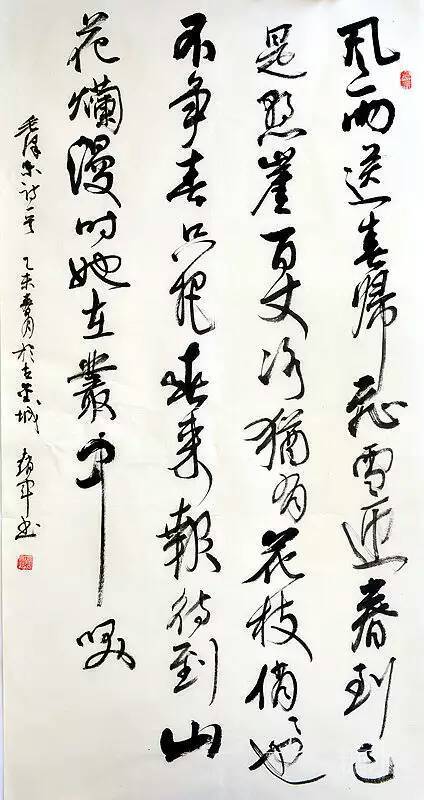 风雨送春归飞雪迎春到已
是悬崖百丈冰犹有花枝俏々也
不争春只把春来報待到山
花爛漫时她在叢中咲
毛泽东诗一首 乙未 月於古 城 书